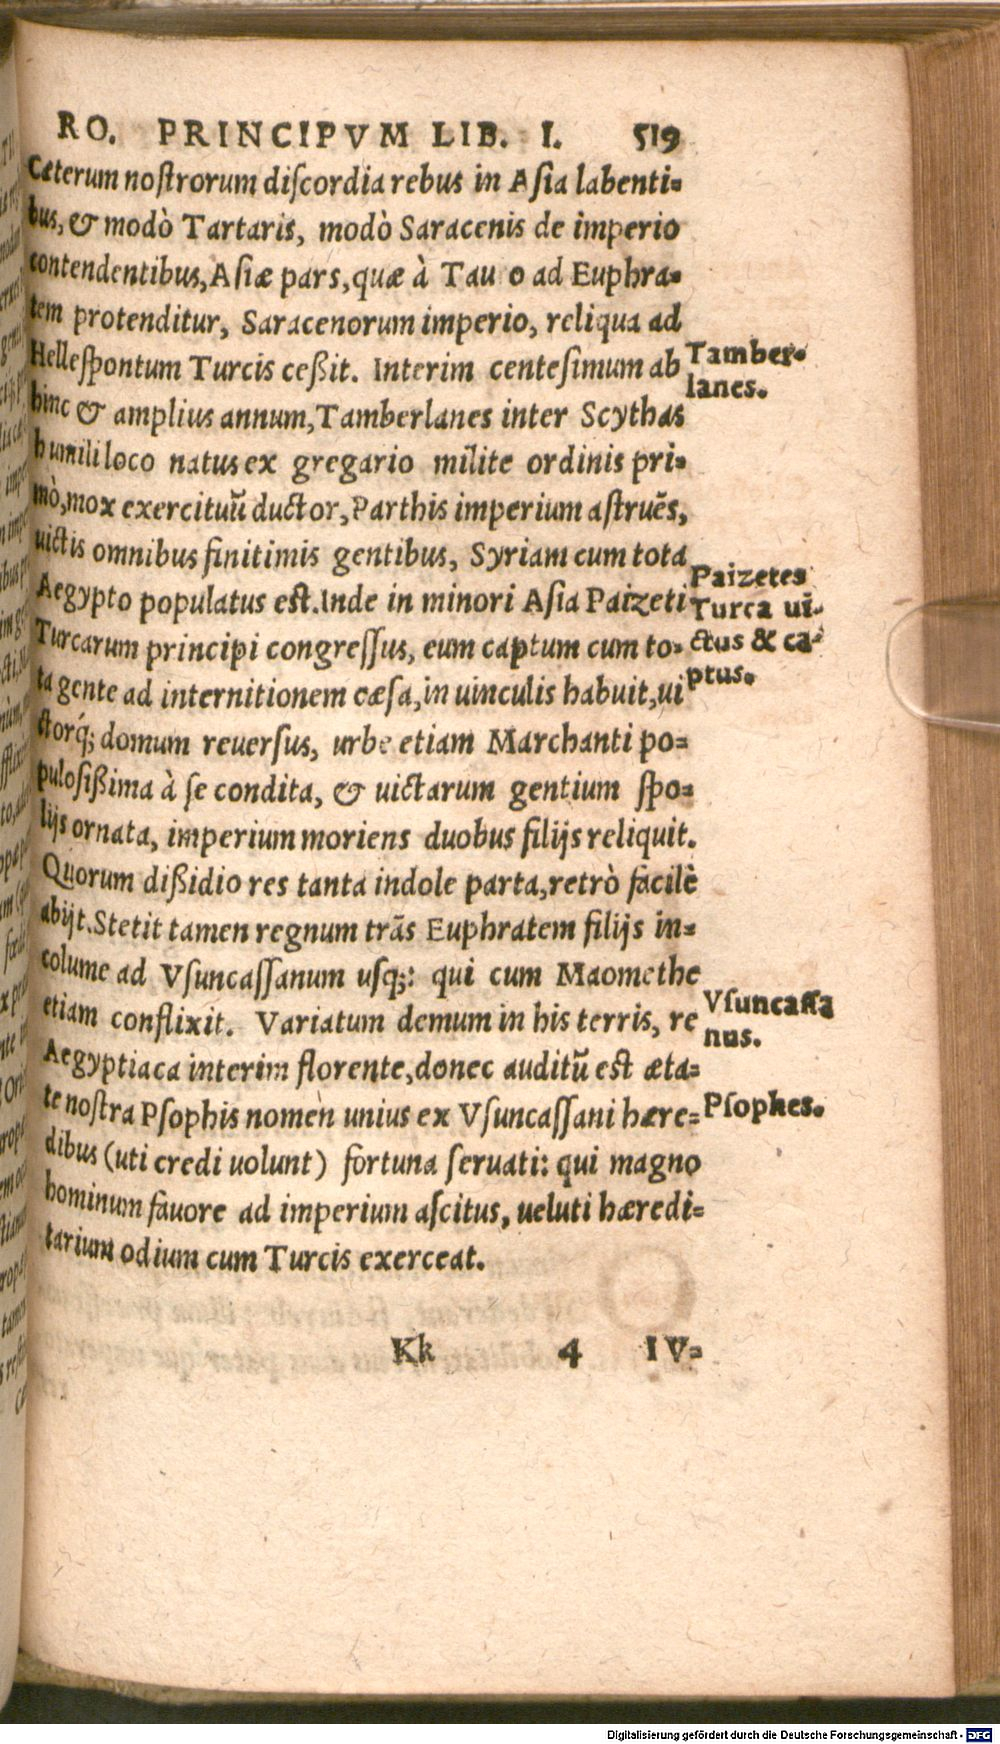 RO. PRINCIPVM LIB. I. 519
Cæterum noſtrorum diſcordia rebus in Aſia labenti-
bus, & modò Tartaris, modò Saracenis de imperio
contendentibus, Aſiæ pars, quæ à Tau o ad Euphra-
tem protenditur, Saracenorum imperio, reliqua ad
Helleſpontum Turcis ceßit. Interim centeſimum ab
hinc & amplius annum, Tamberlanes inter Scythas
humili loco natus ex gregario milite ordinis pri-
mò, mox exercituū ductor, Parthis imperium aſtruēs,
uictis omnibus finitimis gentibus, Syriam cum tota
Aegypto populatus eſt. Inde in minori Aſia Paizeti
Turcarum principi congreſſus, eum captum cum to-
ta gente ad internitionem cæſa, in uinculis habuit, ui
ctorq́; domum reuerſus, urbe etiam Marchanti po-
puloſißima à ſe condita, & uictarum gentium ſpo-
lijs ornata, imperium moriens duobus filijs reliquit.
Quorum dißidio res tanta indole parta, retrò facilè
abijt. Stetit tamen regnum trãs Euphratem filijs in-
colume ad Vſuncaſſanum uſq;: qui cum Maomethe
etiam conflixit. Variatum demum in his terris, re
Aegyptiaca interim florente, donec auditũ eſt æta-
te noſtra Pſophis nomen unius ex Vſuncaſſani hære-
dibus (uti credi uolunt) fortuna ſeruati: qui magno
hominum fauore ad imperium aſcitus, ueluti hæredi-
tarium odium cum Turcis exerceat.
Kk 4 IV-
Tamber-
lanes.
Paizetes
Turca ui-
ctus & ca-
ptus.
Vſuncaſſa
nus.
Pſophes.
Digitalisierung gefördert durch die Deutsche Forschungsgemeinschaft - DFG